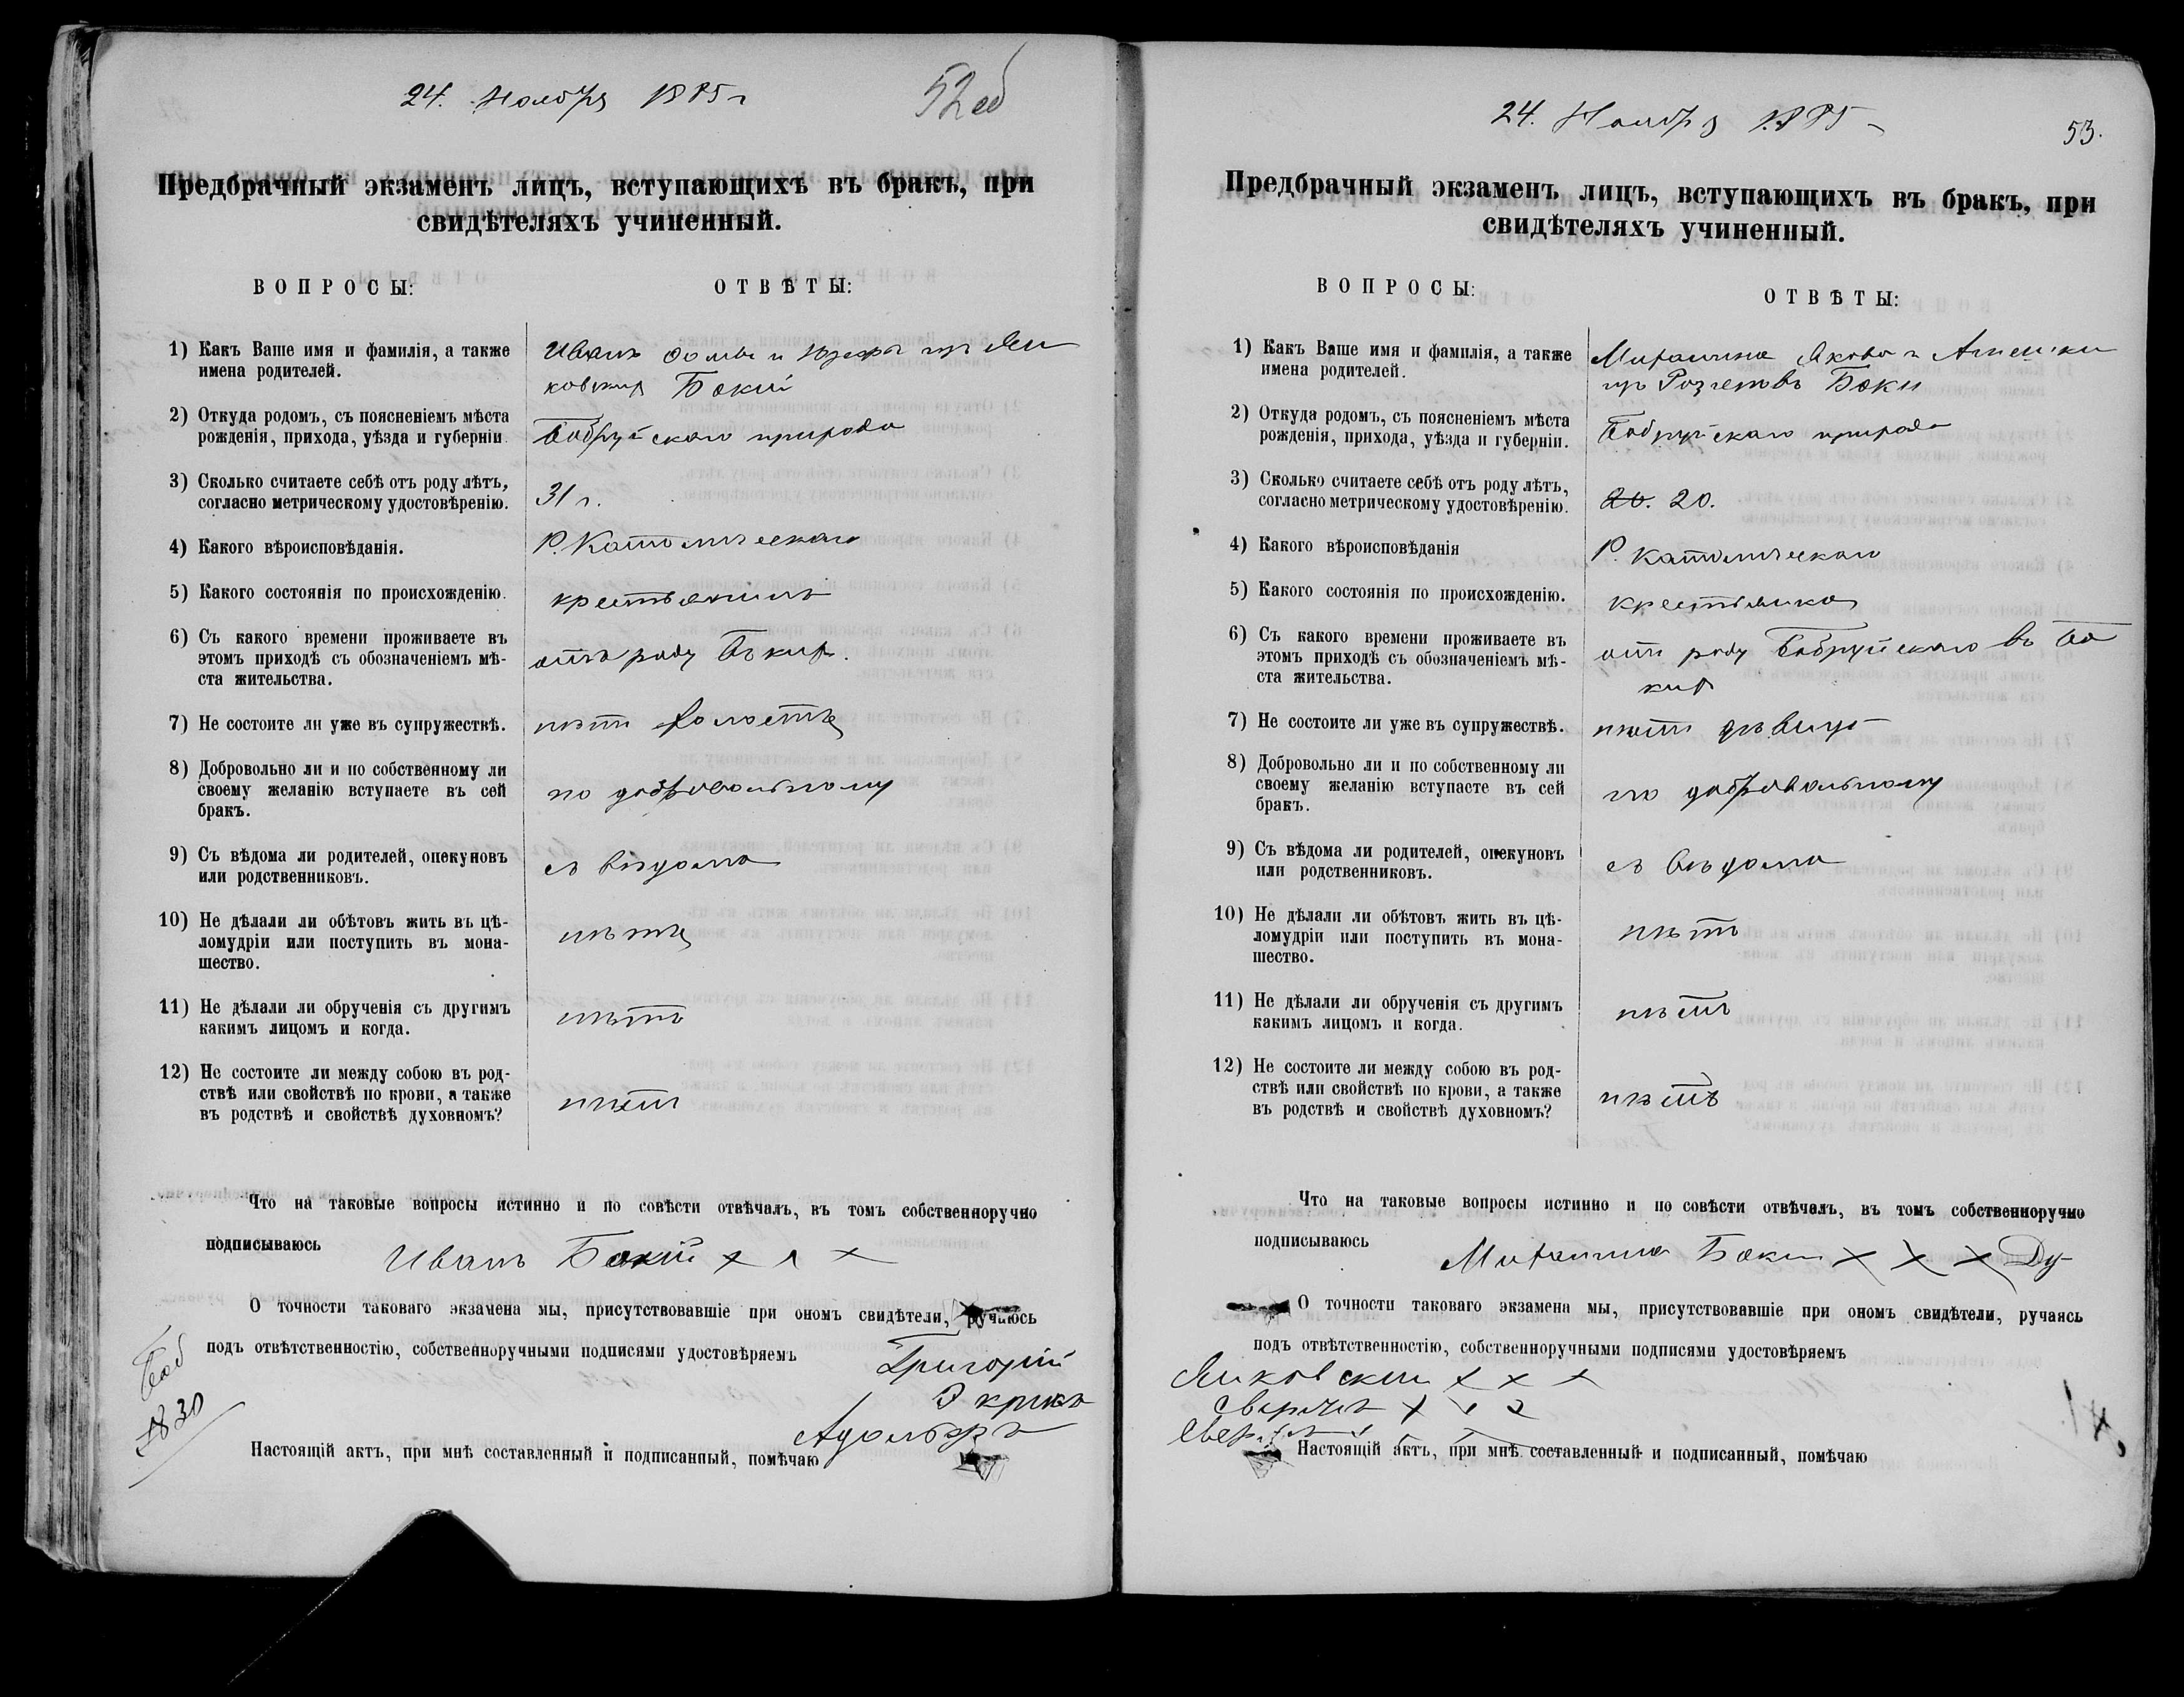 24. Ноября 1885 г
52 об
Предбрачный экзаменъ лицъ, вступающихъ въ бракъ, при
свидѣтеляхъ учиненный.
ВОПРОСЫ:
ОТВѢТЫ:
1) Какъ Ваше имя и фамилія, а также
имена родителей.
Иванъ Фомы и
Бокій
2) Откуда родомъ, съ поясненіемъ мѣста
рожденія, прихода, уѣзда и губерніи.
Бобруйскаго прихода
3) Сколько считаете себѣ отъ роду лѣтъ,
согласно метрическому удостовѣренію.
31 г.
4) Какого вѣроисповѣданія.
Р. Католическаго
5) Какого состоянія по происхожденію.
крестьянинъ
6) Съ какого времени проживаете въ
этомъ приходѣ съ обозначеніемъ мѣ-
ста жительства.
отъ роду
7) Не состоите ли уже въ супружествѣ.
нѣтъ холостъ
8) Добровольно ли и по собственному ли
своему желанію вступаете въ сей
бракъ.
по добровольному
9) Съ вѣдома ли родителей, опекуновъ
или родственниковъ.
съ вѣдома
10) Не дѣлали ли обѣтовъ жить въ цѣ-
ломудріи или поступить въ мона-
шество.
нѣтъ
11) Не дѣлали ли обрученія съ другимъ
какимъ лицомъ и когда.
нѣтъ
12) Не состоите ли между собою въ род-
ствѣ или свойствѣ по крови, а также
въ родствѣ и свойствѣ духовномъ?
нѣтъ
Что на таковые вопросы истинно и по совѣсти отвѣчалъ, въ томъ собственноручно
подписываюсь Иванъ Бокій x x x
О точности таковаго экзамена мы, присутствовавшіе при ономъ свидѣтели, ручаюсь
подъ отвѣтственностію, собственноручными подписями удостовѣряемъ Григорій
Адольфъ
Настоящій актъ, при мнѣ составленный и подписанный, помѣчаю
Боб
1830
24. Ноября 1885
53.
Предбрачный экзаменъ лицъ, вступающихъ въ бракъ, при
свидѣтеляхъ учиненный.
ВОПРОСЫ:
ОТВѢТЫ:
1) Какъ Ваше имя и фамилія, а также
имена родителей.
Михалина Якова и
Боки
2) Откуда родомъ, съ поясненіемъ мѣста
рожденія, прихода, уѣзда и губерніи.
Бобруйскаго прихода
3) Сколько считаете себѣ отъ роду лѣтъ,
согласно метрическому удостовѣренію.
20.
4) Какого вѣроисповѣданія
Р. Католическаго
5) Какого состоянія по происхожденію.
крестьянка
6) Съ какого времени проживаете въ
этомъ приходѣ съ обозначеніемъ мѣ-
ста жительства.
отъ роду Бобруйскаго въ Бо
кид
7) Не состоите ли уже въ супружествѣ.
нѣтъ дѣвица
8) Добровольно ли и по собственному ли
своему желанію вступаете въ сей
бракъ.
по добровольному
9) Съ вѣдома ли родителей, опекуновъ
или родственниковъ.
съ вѣдома
10) Не дѣлали ли обѣтовъ жить въ цѣ-
ломудріи или поступить въ мона-
шество.
нѣтъ
11) Не дѣлали ли обрученія съ другимъ
какимъ лицомъ и когда.
нѣтъ
12) Не состоите ли между собою въ род-
ствѣ или свойствѣ по крови, а также
въ родствѣ и свойствѣ духовномъ?
нѣтъ
Что на таковые вопросы истинно и по совѣсти отвѣчалъ, въ томъ собственноручно
подписываюсь Михалина Боки x x x
О точности таковаго экзамена мы, присутствовавшіе при ономъ свидѣтели, ручаясь
подъ отвѣтственностію, собственноручными подписями удостовѣряемъ
x x x
Настоящій актъ, при мнѣ составленный и подписанный, помѣчаю